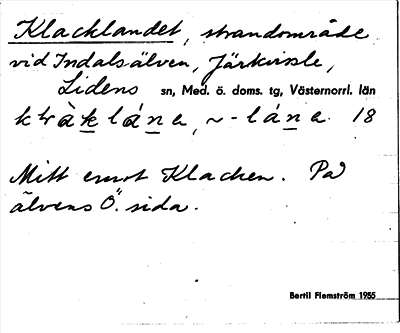 Klacklandet, strandområde
vid Indalsälven, Järkvissle,
Lidens sn, Med. ö. doms. tg, Västernorrl. län
klàklána, ~-lána. 18
Mitt emot Klacken. På
älvens Ö. sida.
Bertil Flemström 1955